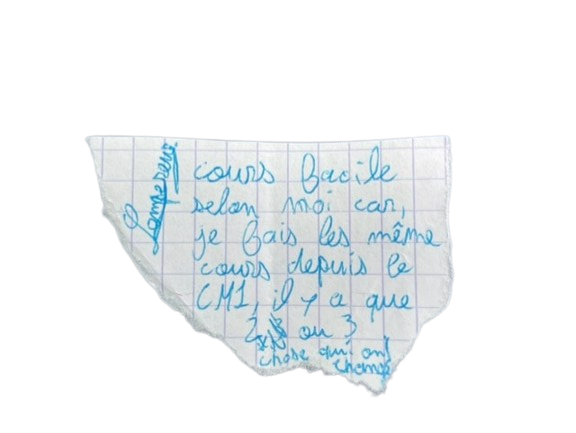 cours facile
selon moi car,
je fais les même
cours depuis le
CM1, il y a que
2 ou 3
chose qui ont
changé